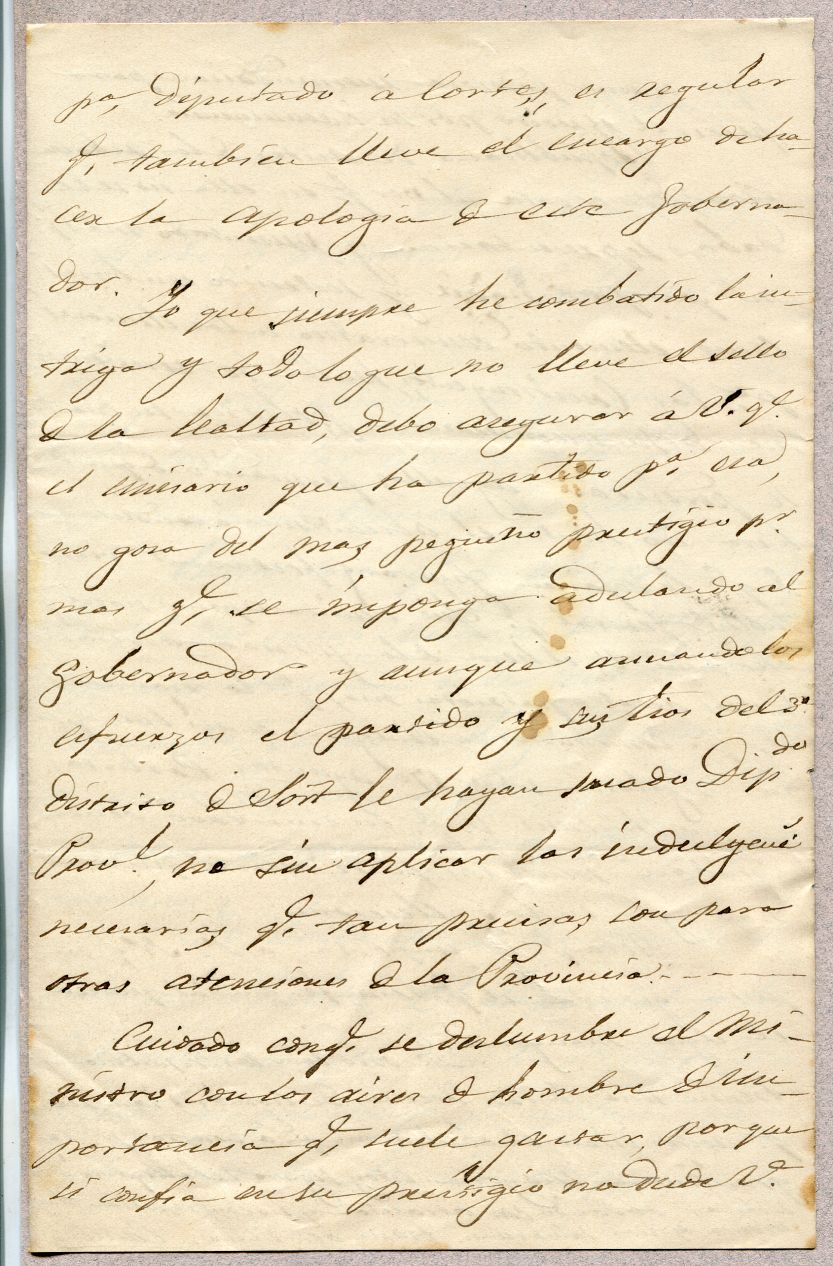 pª, Diputado á Cortes, es regular
qᵉ, tambien lleve el encargo de ha-
cer la apologia de este Goberna-
dor. Yo que siempre he combatido la in-
triga y todo lo que no lleve el sello
de la lealtad, debo asegurar á V. qᵉ.
el emisario que ha partido pª. esa,
no gosa del mas pequeño prestigio pʳ.
mas qᵉ, se imponga adulando al
Gobernador y aunque aunando los
esfuerzos el partido y sus tios del 3ʳ.
distrito de Sort le hayan sacado Dip.ᵈᵒ
Provˡ, no sin aplicar las
necesarias qᵉ. tan precisas son para
otras atensiones de la Provincia.- - - -
Cuidado conqᵉ. se deslumbre el Mi-
nistro con los aires de hombre de im-
portancia qᵉ, suele gastar, porque
si confia en su prestigio no dude V.